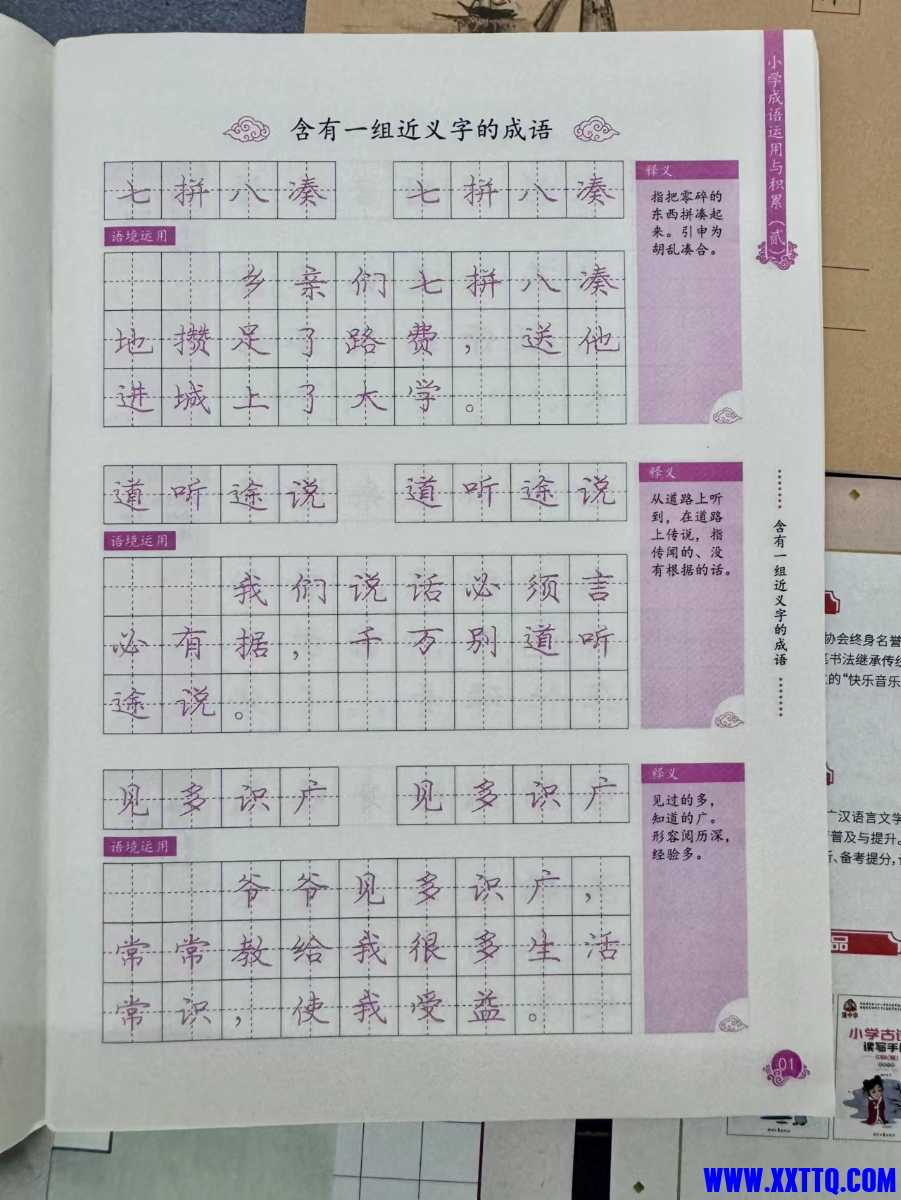 小学成语运用与积累（贰）
含有一组近义字的成语
七拼八凑 七拼八凑
语境运用
乡亲们七拼八凑
地攒足了路费，送他
进城上了大学。
释义
指把零碎的
东西拼凑起
来。引申为
胡乱凑合。
道听途说 道听途说
语境运用
我们说话必须言
必有据，千万别道听
途说。
释义
从道路上听
到，在道路
上传说，指
传闻的、没
有根据的话。
含有一组近义字的成语
见多识广 见多识广
语境运用
爷爷见多识广，
常常教给我很多生活
常识，使我受益。
释义
见过的多，
知道的广。
形容阅历深，
经验多。
01
协会终身名誉
书法继承传统
的“快乐音乐
广汉语言文学
普及与提升。
、备考提分，
品
小学古诗
读写手册
WWW.XXTTQ.COM